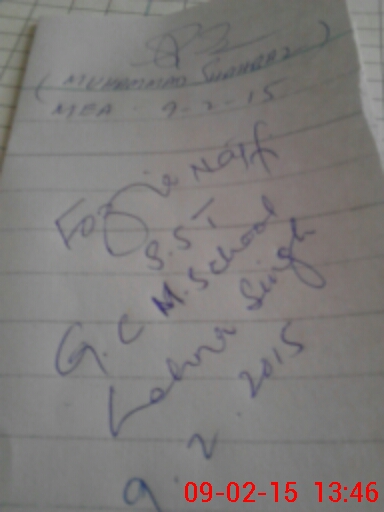 (MUHAMMAD SHAHBAZ)
MEA - 9-2-15
Fozie Naff
S.ST
G.C M.School
Lehna Singh
9.2.2015
09-02-15 13:46